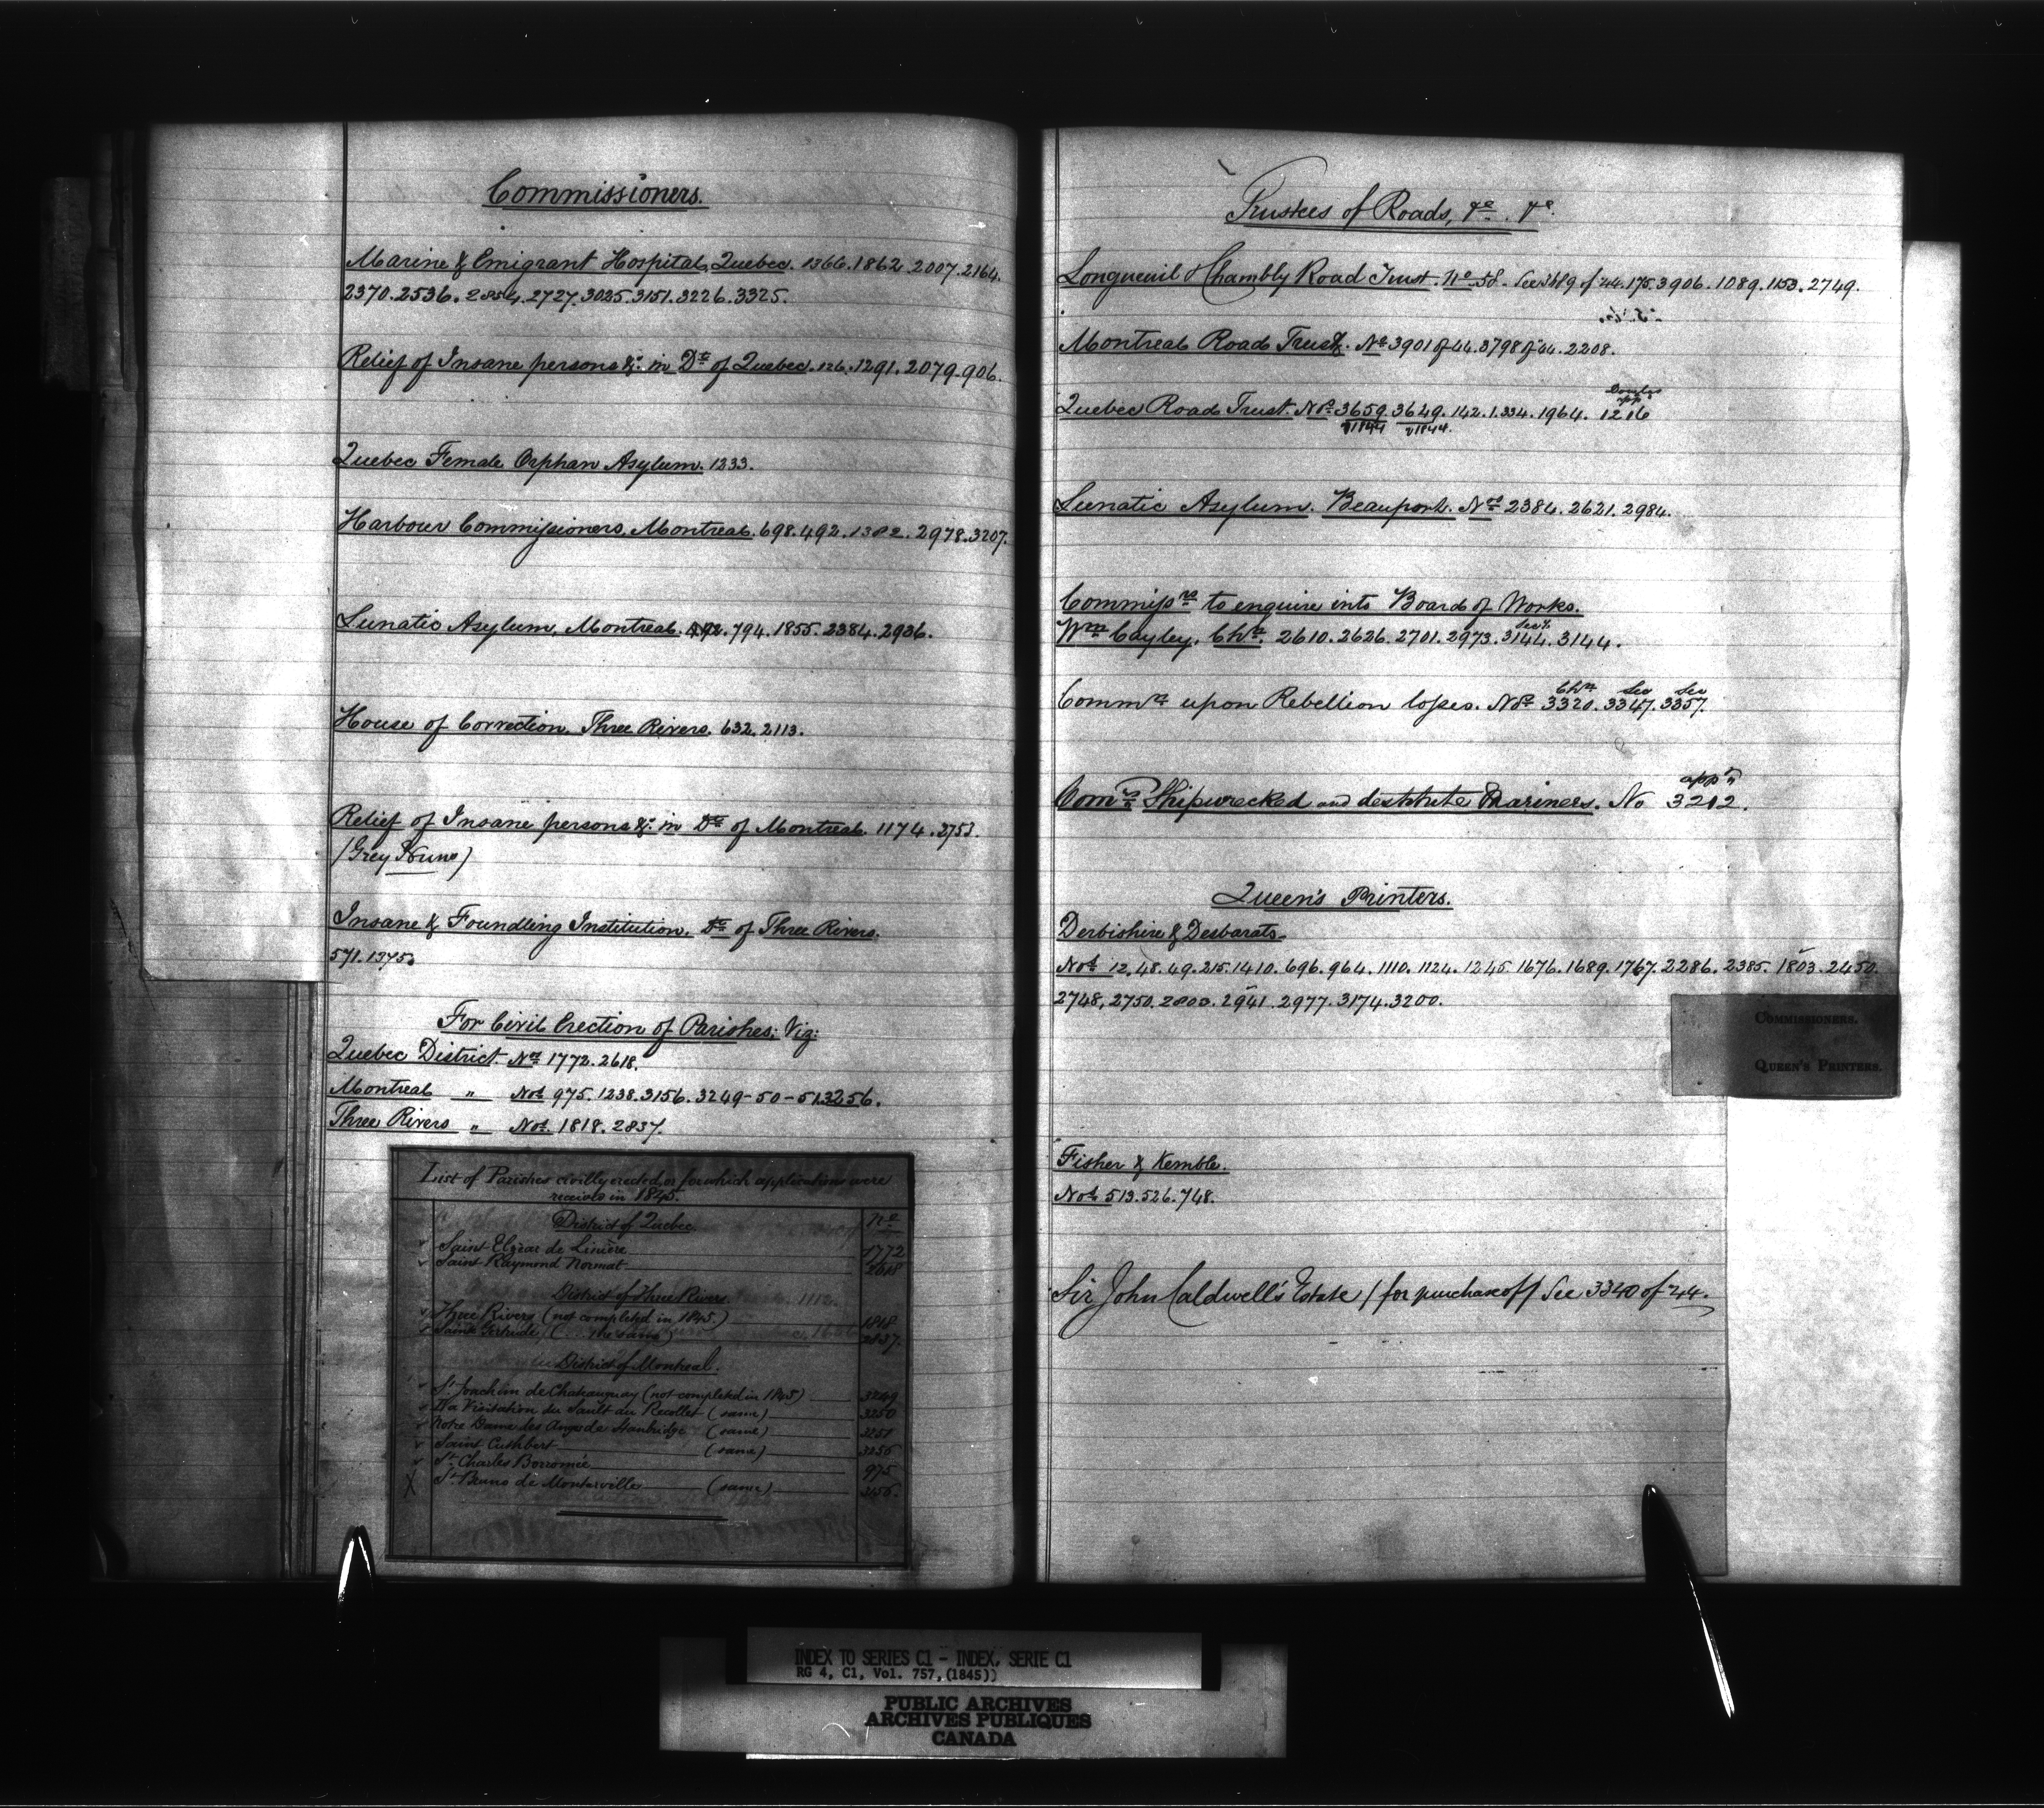 Commissioners.
Marine & Emigrant Hospital, Quebec. 1366. 1862. 2007. 2164.
2370. 2536. 2727. 3025. 3151. 3226. 3325.
Relief of Insane persons &c. in Dt. of Quebec. 126. 1291. 2079. 906.
Quebec Female Orphan Asylum. 1233.
Harbour Commissioners, Montreal. 698. 492. 1382. 2978. 3207.
Lunatic Asylum, Montreal. 794. 1855. 2384. 2936.
House of Correction, Three Rivers. 632. 2113.
Relief of Insane persons &c. in Dt. of Montreal. 1174. 2753.
(Grey Nuns)
Insane & Foundling Institution, Dt. of Three Rivers.
571. 1375.
For Civil Erection of Parishes; Viz:
Quebec District. Nos. 1772. 2618.
Montreal " Nos. 975. 1238. 3156. 3249-50-51. 3256.
Three Rivers " Nos. 1818. 2837.
List of Parishes civilly erected, or for which applications were
receivd in 1845.
District of Quebec. No.
Saint Elzéar de Linière 1772
Saint Raymond Nonnat 2618
District of Three Rivers.
Three Rivers (not completed in 1845.) 1818
Saint Gertrude (... the same) 2837.
District of Montreal.
St. Joachim de Chateauguay (not completed in 1845) 3249
La Visitation du Sault au Recollet (same) 3250
Notre Dame des Anges de Stanbridge (same) 3251
Saint Cuthbert (same) 3256
St. Charles Borromée 975
X St. Bruno de Montarville (same) 3156.
Trustees of Roads, &c. &c.
Longueuil & Chambly Road Trust. No. 58. See 3689 of '44. 175. 3906. 1089. 1153. 2749.
Montreal Road Trust. No. 3901 of 44. 3798 of 44. 2208.
app
Quebec Road Trust. Nos. 3659 3649. 142. 1. 334. 1964. 1216
of 1844 of 1844.
Lunatic Asylum. Beauport. Nos. 2384. 2621. 2984.
Commissrs. to enquire into Board of Works.
Secy.
Wm. Cayley. Chn. 2610. 2626. 2701. 2973. 3144. 3144.
Chn Sec Sec
Commrs upon Rebellion losses. Nos. 3320. 3347. 3357.
app'n
Comrs. Shipwrecked and destitute Mariners. No 3212.
Queen's Printers.
Derbishire & Desbarats.
Nos. 12. 48. 49. 215. 1410. 696. 964. 1110. 1124. 1245. 1676. 1689. 1767. 2286. 2385. 1803. 2450.
2748. 2750. 2800. 2941. 2977. 3174. 3200.
COMMISSIONERS.
QUEEN'S PRINTERS.
Fisher & Kemble.
Nos. 513. 526. 748.
Sir John Caldwell's Estate (for purchase of) See 3340 of '44.
INDEX TO SERIES C1 - INDEX, SERIE C1
RG 4, C1, Vol. 757, (1845))
PUBLIC ARCHIVES
ARCHIVES PUBLIQUES
CANADA